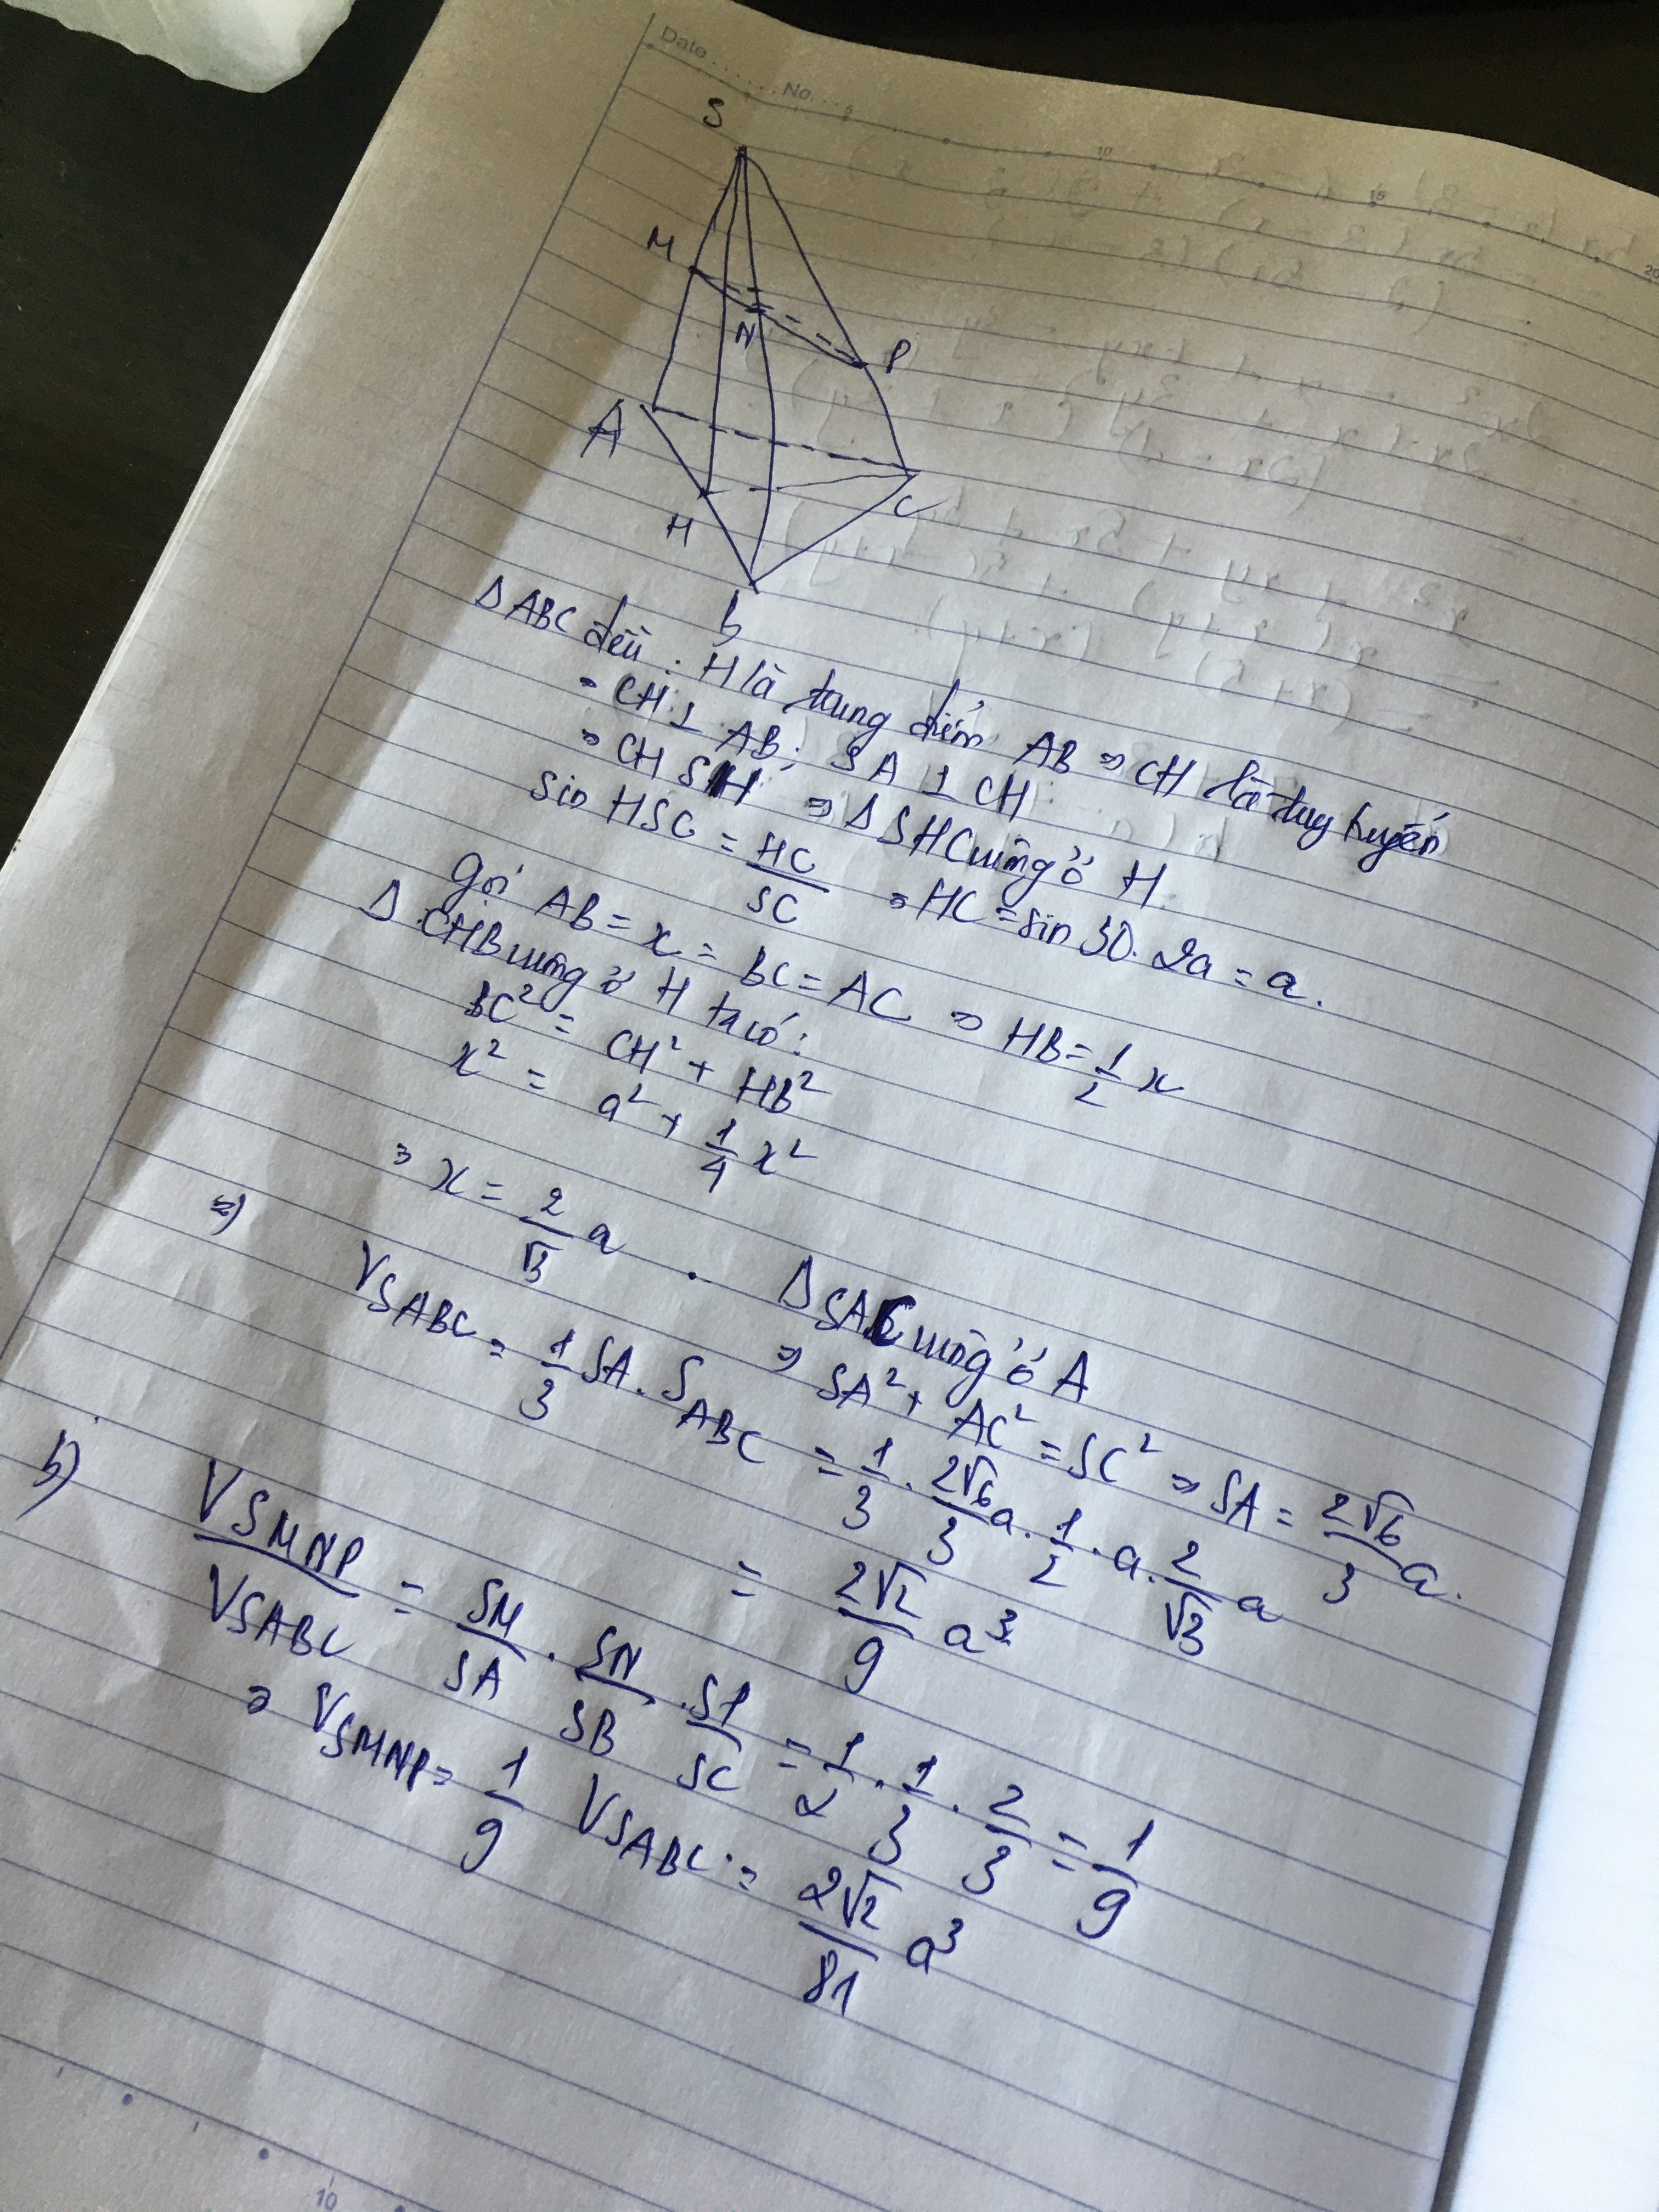 Date ...... No. ...
5 10 15 20
S
M
N
P
A
C
H
B
Δ ABC đều : H là trung điểm AB ⇒ CH là
⇒ CH ⊥ AB ; SA ⊥ CH
⇒ CH SH ⇒ Δ SHC ở H
sin HSC = HC/SC ⇒ HC = sin 30 . 2a = a .
Gọi AB = x = BC = AC ⇒ HB = 1/2 x
Δ CHB ở H ta có :
BC² = CH² + HB²
x² = a² + 1/4 x²
⇒ x = 2/√3 a . Δ SAC ở A
⇒ SA² + AC² = SC² ⇒ SA = 2√6/3 a .
V SABC = 1/3 SA . S ABC = 1/3 . 2√6/3 a . 1/2 . a . 2/√3 a
= 2√2/9 a³
b) V SMNP / V SABC = SM/SA . SN/SB . SP/SC = 1/2 . 1/3 . 2/3 = 1/9
⇒ V SMNP = 1/9 V SABC = 2√2/81 a³
10